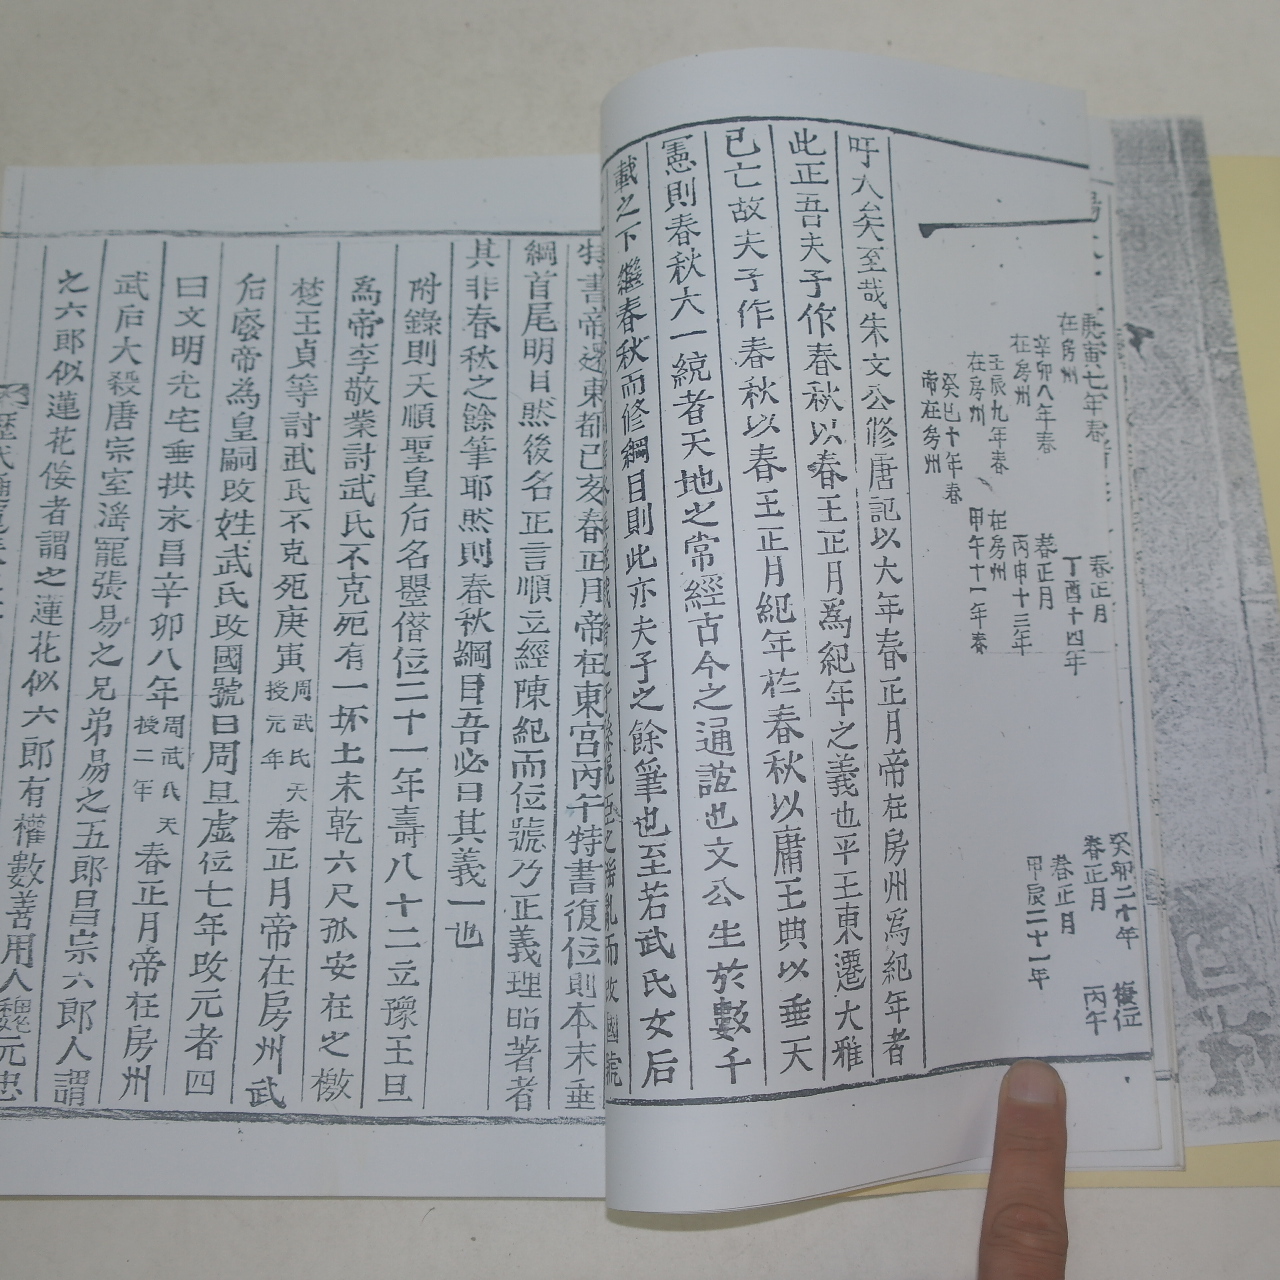 庚寅七年春
在房州
辛卯八年春
在房州
壬辰九年春
在房州
癸巳十年春
帝在房州
春正月
丁酉十四年
春正月
丙申十三年
在房州
甲午十一年春
癸卯二十年
春正月
春正月
甲辰二十一年
復位
丙午
吁大矣至哉朱文公修唐記以大年春正月帝在房州為紀年者
此正吾夫子作春秋以春王正月為紀年之義也平王東遷大雅
已亡故夫子作春秋以春王正月紀年於春秋以庸王典以垂天
憲則春秋大一統者天地之常經古今之通誼也文公生於數千
載之下繼春秋而修綱目則此亦夫子之餘筆也至若武氏女后
特書帝還東都己亥春正月帝在東宮丙午特書復位則本末垂
綱首尾明目然後名正言順立經陳紀而位號乃正義理昭著者
其非春秋之餘筆耶然則春秋綱目吾必曰其義一也
附錄則天順聖皇后名曌僭位二十一年壽八十二立豫王旦
為帝李敬業討武氏不克死有一抔土未乾六尺孤安在之檄
楚王貞等討武氏不克死庚寅周武氏天授元年春正月帝在房州武
后廢帝為皇嗣改姓武氏改國號曰周旦虛位七年改元者四
曰文明光宅垂拱永昌辛卯八年周武氏天授二年春正月帝在房州
武后大殺唐宗室滛寵張易之兄弟易之五郎昌宗六郎人謂
之六郎似蓮花倿者謂之蓮花似六郎有權數善用人魏元忠